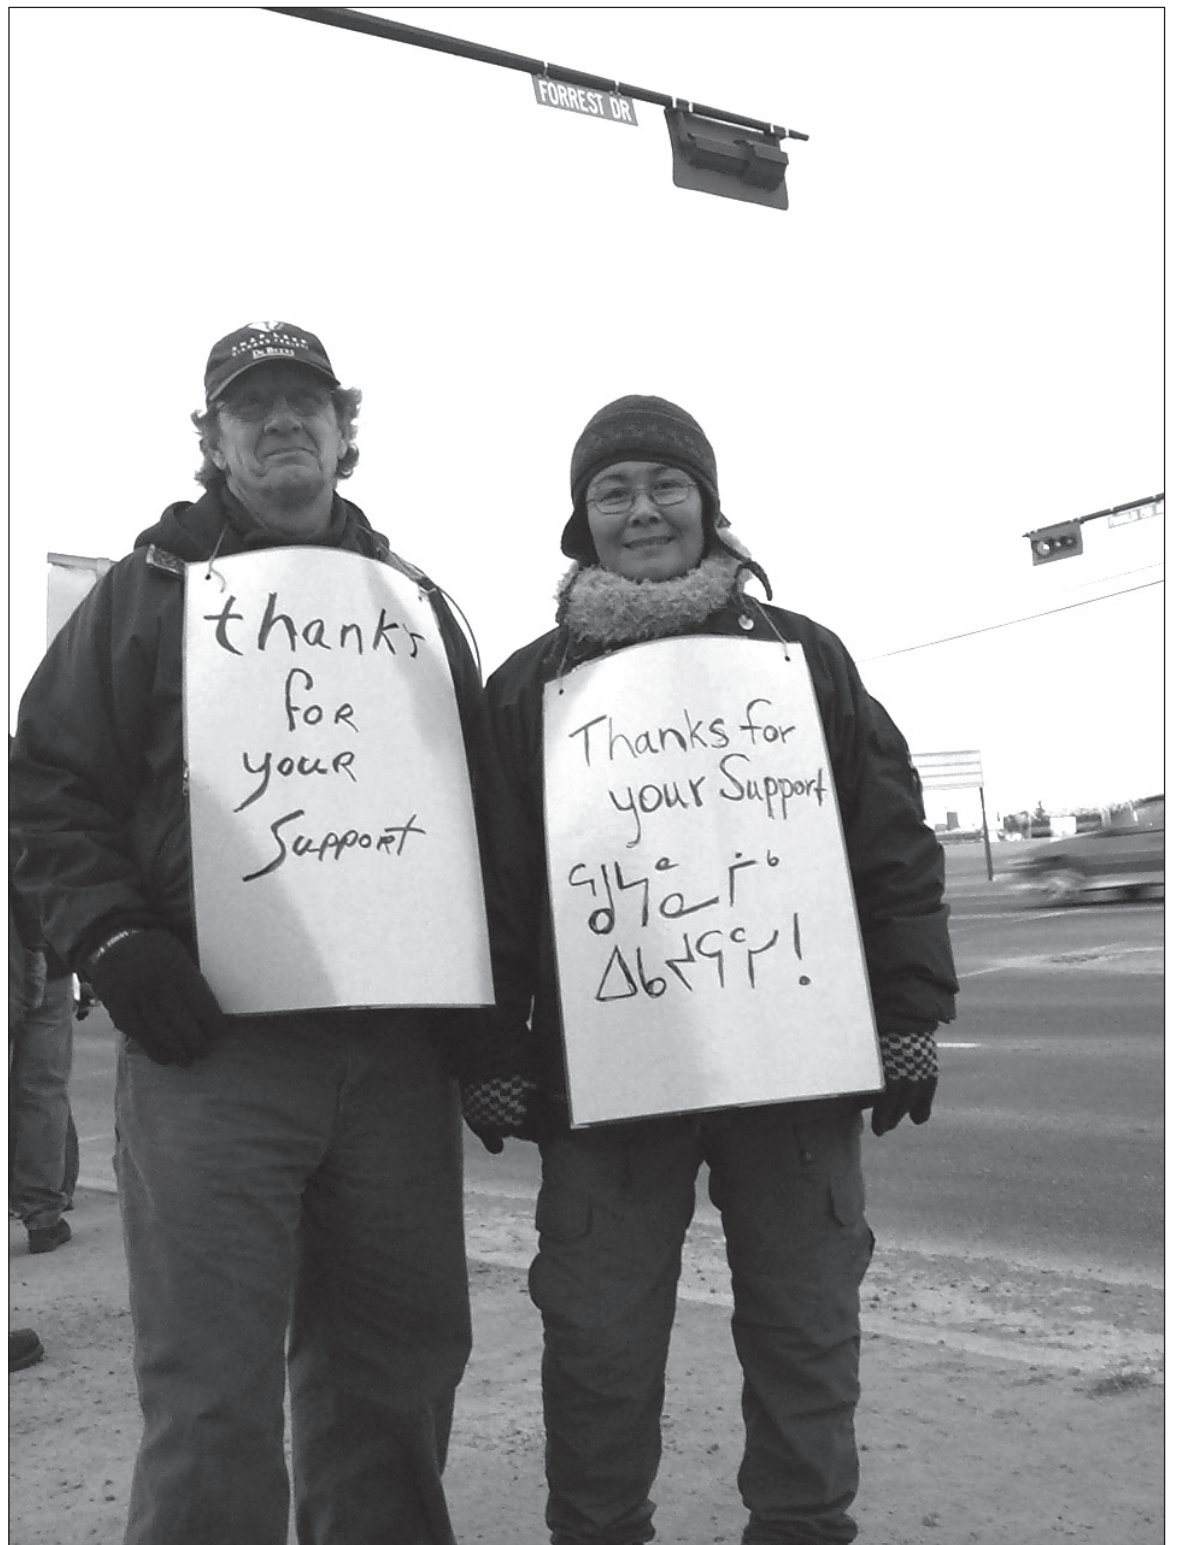 FORREST DR
SNAP LAKE
DE BEERS
thank's
for
your
Support
Thanks for
your Support
ᖁᔭᓐᓇᒦᒃ
ᐃᑲᔪᕋᑦᓯ!